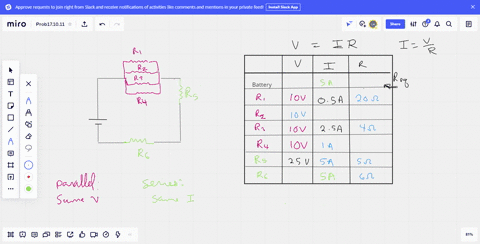 Approve requests to join right from Slack and receive notifications of activities like comments and mentions in your private feed! Install Slack App
miro Prob17.10.11
Share
V = I R
I = V/R
V I R
Battery 5A Req
R1 10V 0.5A 20Ω
R2 10V
R3 10V 2.5A 4Ω
R4 10V 1A
R5 25V 5A 5Ω
R6 5A 6Ω
R1
R2
R3
R4
R5
R6
parallel:
same V
series:
same I